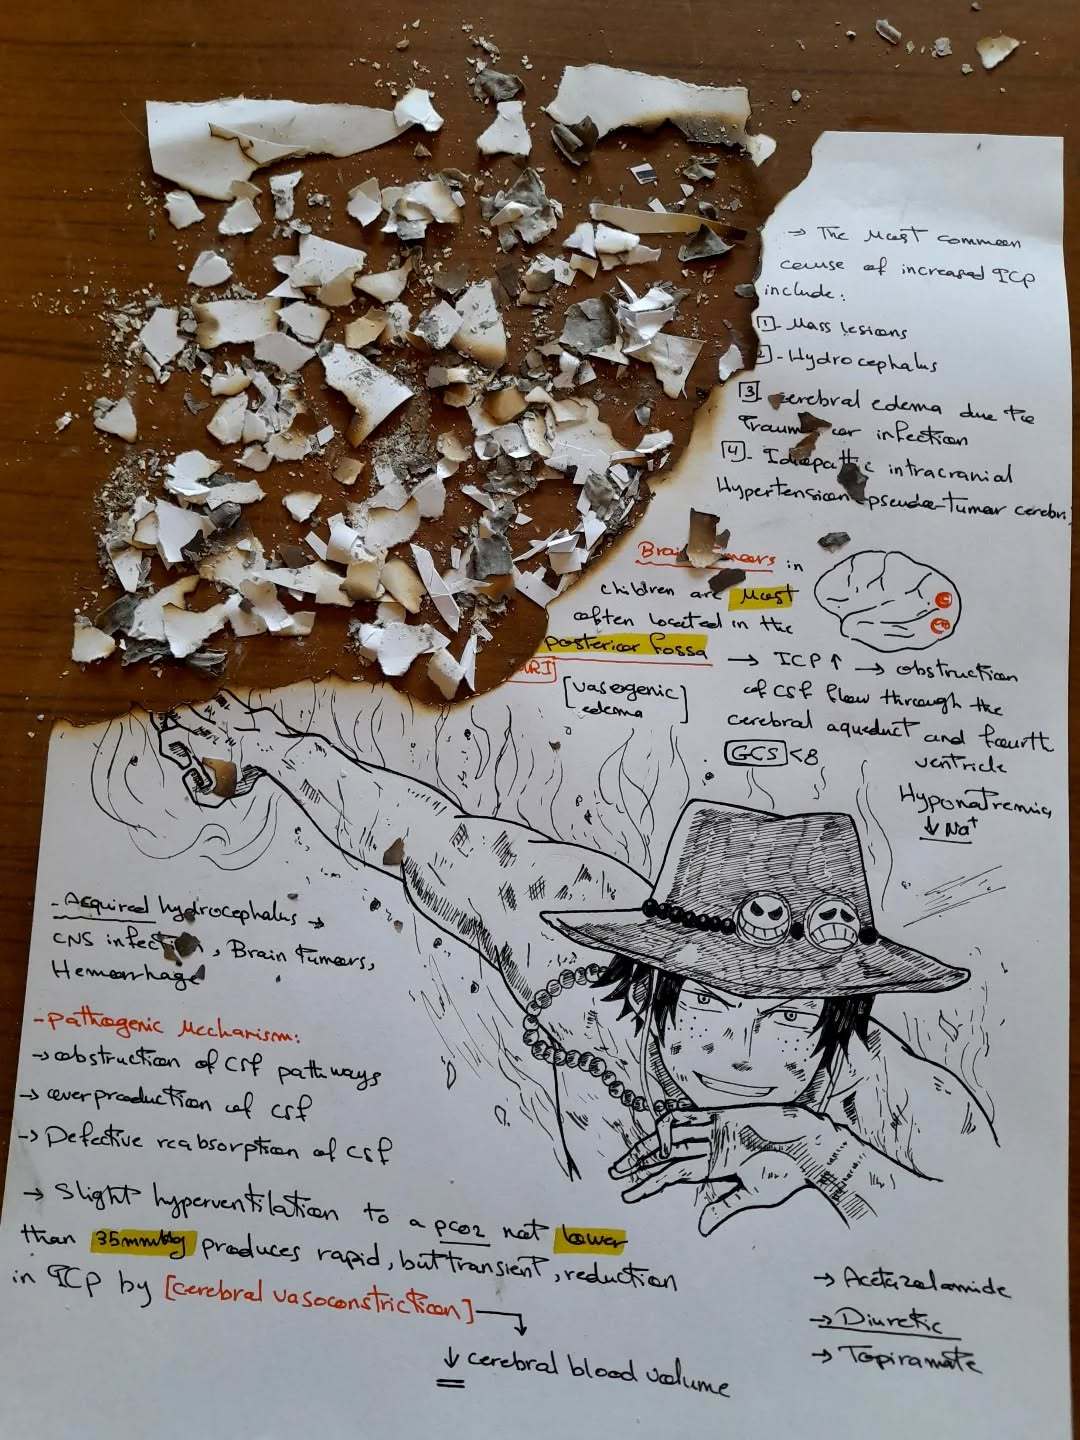 → The Most common
cause of increased ICP
include:
1 - Mass lesions
2 - Hydrocephalus
3 - cerebral edema due to
Trauma or infection
4 - Idiopathic intracranial
Hypertension - pseudo-tumor cerebri
Brain Tumors in
children are Most
often located in the
posterior fossa
MRI
[vasogenic
edema]
→ ICP ↑ → obstruction
of CSF flow through the
cerebral aqueduct and fourth
ventricle
GCS < 8
Hyponatremia
↓ Na+
- Acquired hydrocephalus →
CNS infection, Brain tumors,
Hemorrhage
- Pathogenic Mechanism:
→ obstruction of CSF pathways
→ overproduction of CSF
→ Defective reabsorption of CSF
→ Slight hyperventilation to a pco2 not lower
than 35mmHg produces rapid, but transient, reduction
in ICP by [cerebral vasoconstriction]
↓ cerebral blood volume
→ Acetazolamide
→ Diuretic
→ Topiramate